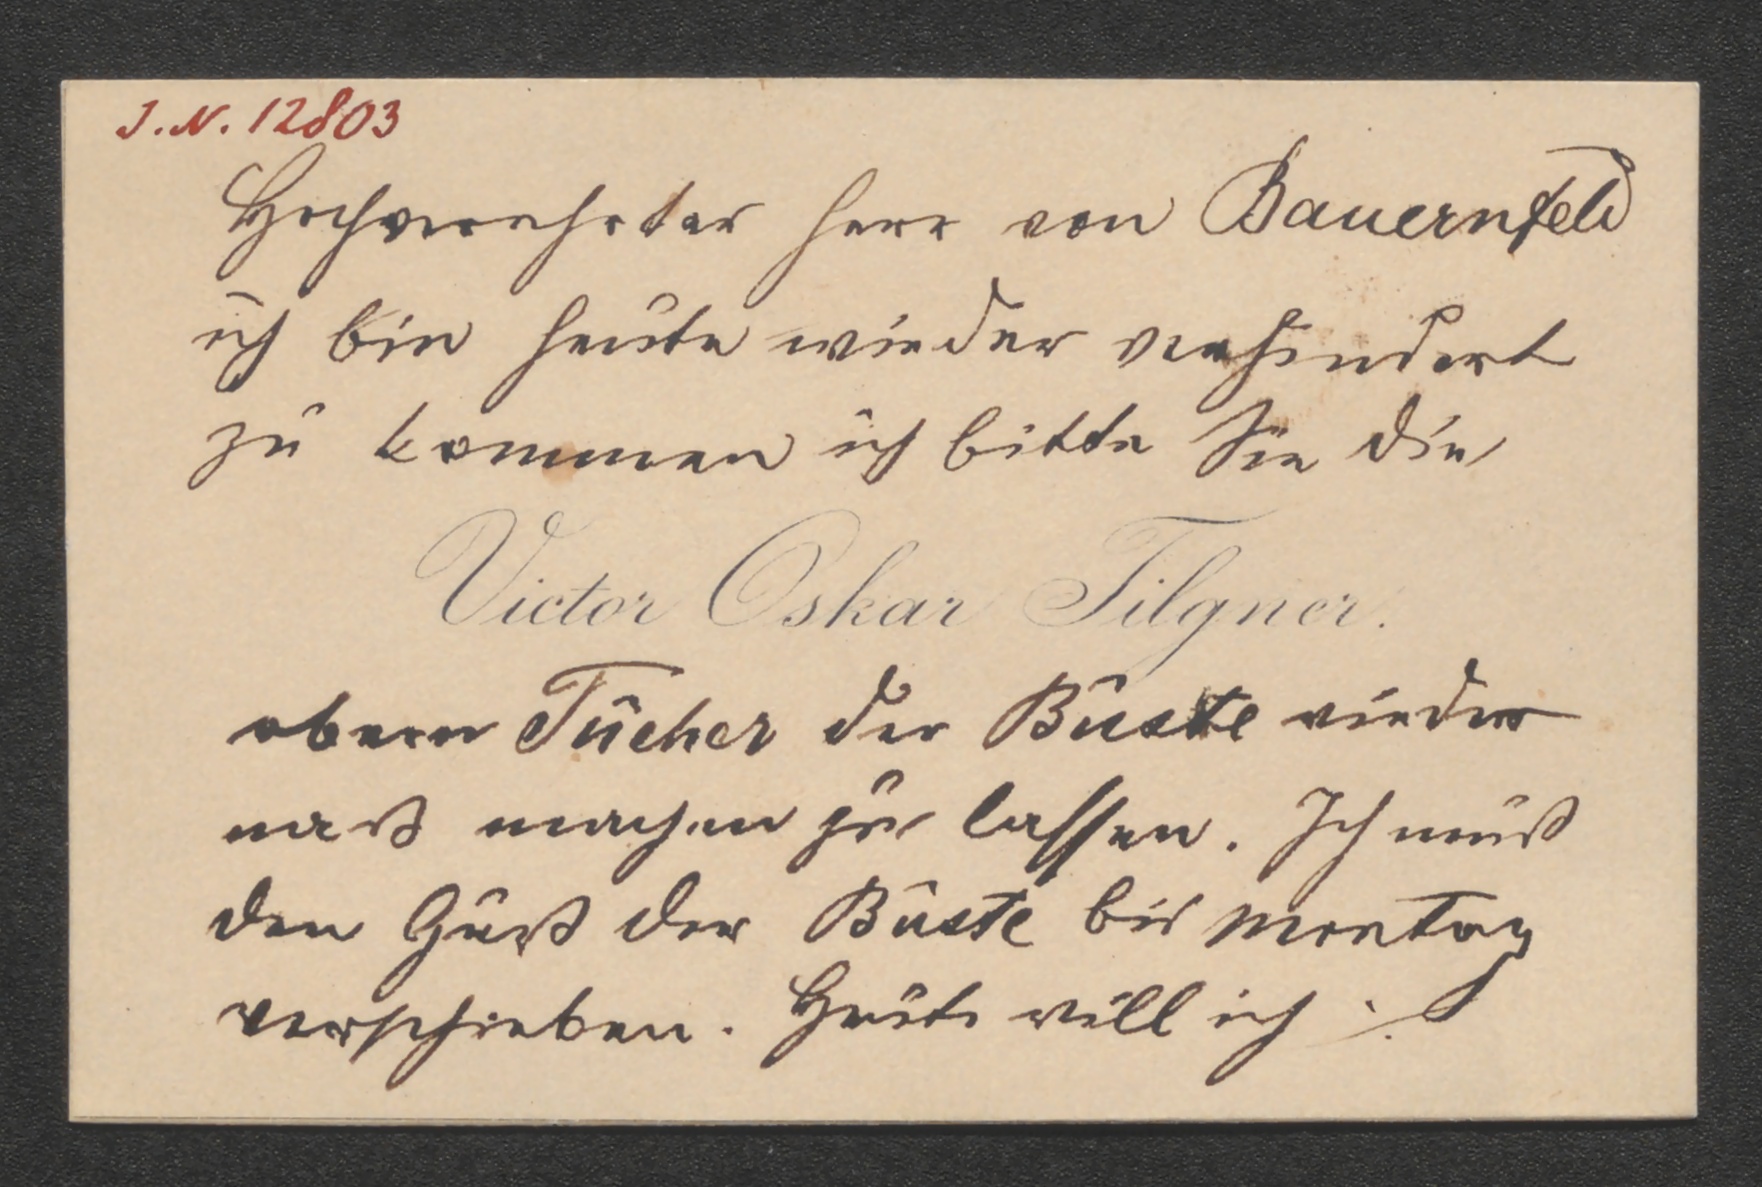 J.N. 12803
Hochverehrter Herr von Bauernfeld
ich bin heute wieder verhindert
zu kommen ich bitte Sie die
Victor Oskar Tilgner.
obern Tücher der Büste wieder
naß machen zu lassen. Ich muß
den Guß der Büste bis Montag
verschieben. Heute will ich ./.